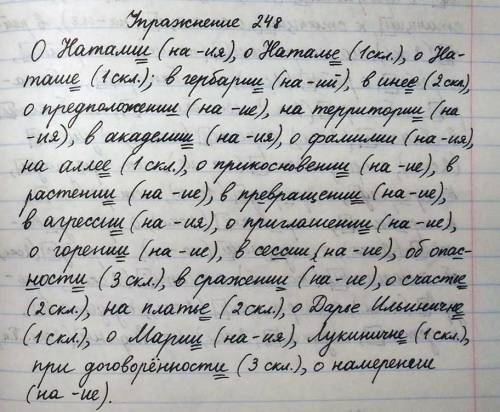 Упражнение 248
О Наталии (на -ия), о Наталье (1скл.), о На-
таше (1скл.); в гербарии (на -ий), в инее (2скл.),
о предположении (на -ие), на территории (на
-ия), в академии (на -ия), о фамилии (на -ия),
на аллее (1 скл.), о прикосновении (на -ие), в
растении (на -ие), в превращении (на -ие),
в агрессии (на -ия), о приглашении (на -ие),
о горении (на -ие), в сессии (на -ие), об опас-
ности (3 скл.), в сражении (на -ие), о счастье
(2 скл.), на платье (2 скл.), о Дарье Ильиничне
(1 скл.), о Марии (на -ия), Лукиничне (1 скл.),
при договорённости (3 скл.), о намерении
(на -ие).